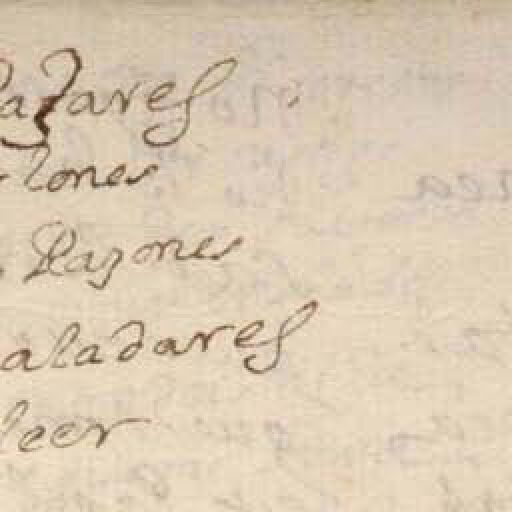 Pazares
lones
Razones
aladares
leer